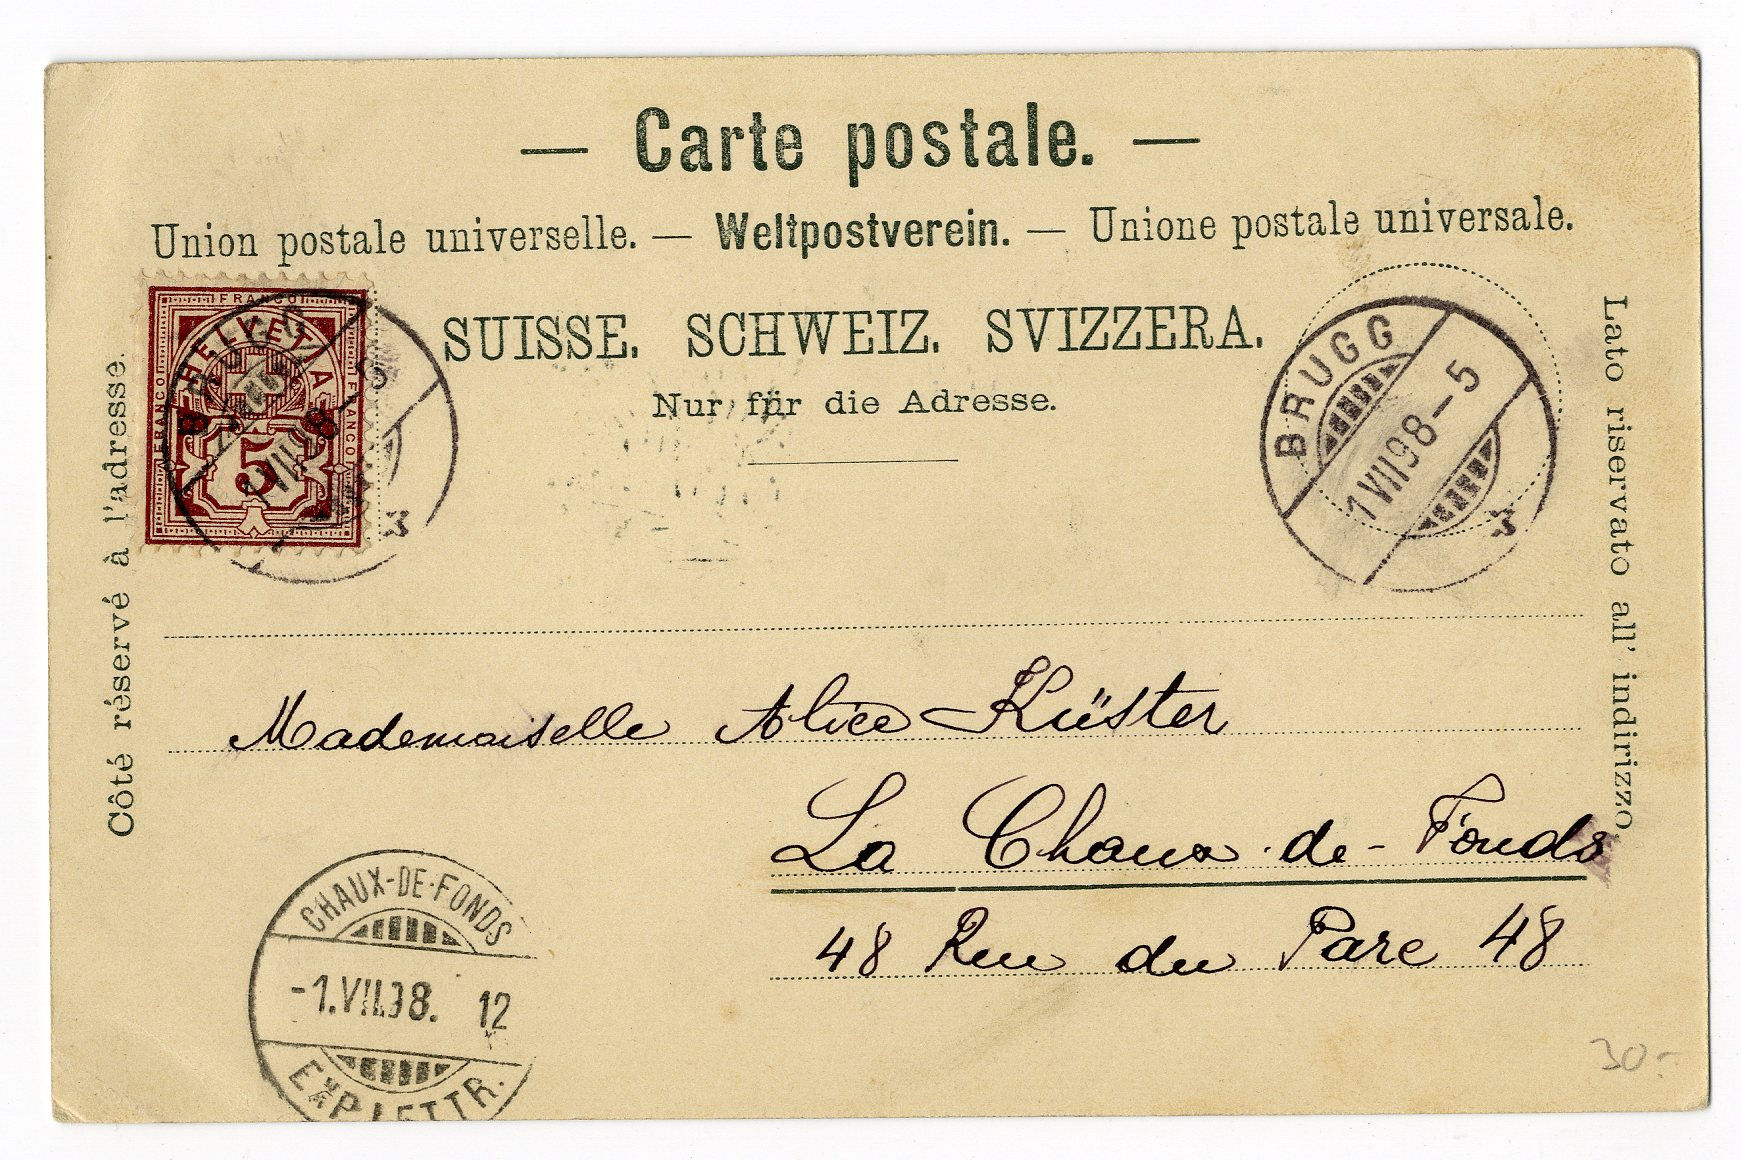 — Carte postale. —
Union postale universelle. — Weltpostverein. — Unione postale universale.
SUISSE. SCHWEIZ. SVIZZERA.
Nur für die Adresse.
Côté réservé à l'adresse.
Lato riservato all' indirizzo.
FRANCO
FRANCO
FRANCO
HELVETIA
5
BRUGG
1 VII 98
BRUGG
1 VII 98 – 5
Mademoiselle Alice Küster
La Chaux-de-Fonds
48 Rue du Parc 48
CHAUX-DE-FONDS
-1.VII.98. 12
EXP. LETTR.
30.-